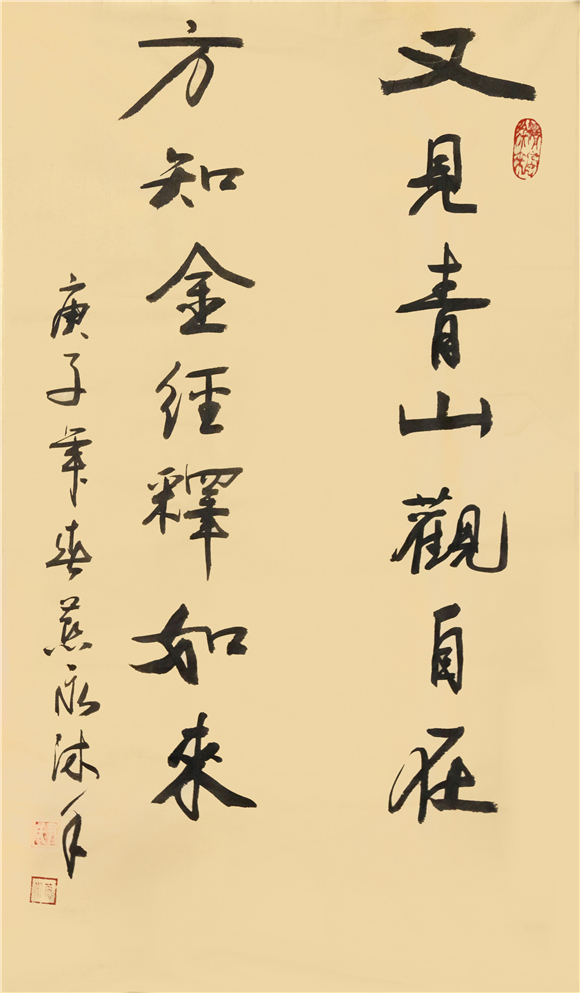 又見青山觀自在
方知金經釋如來
庚子年春永沐手